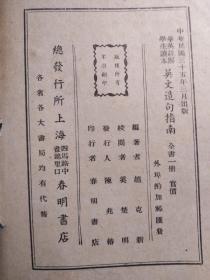 中華民國三十五年三月出版
華英註解
學生讀本
英文造句指南
全書一冊 實價
外埠酌加郵匯費
編著者 趙克新
校閱者 奚楚明
發行人 陳兆椿
印行者 春明書店
版權所有
不准翻印
總發行所上海
四馬路中
畫錦里口
春明書店
各省各大書局均有代售